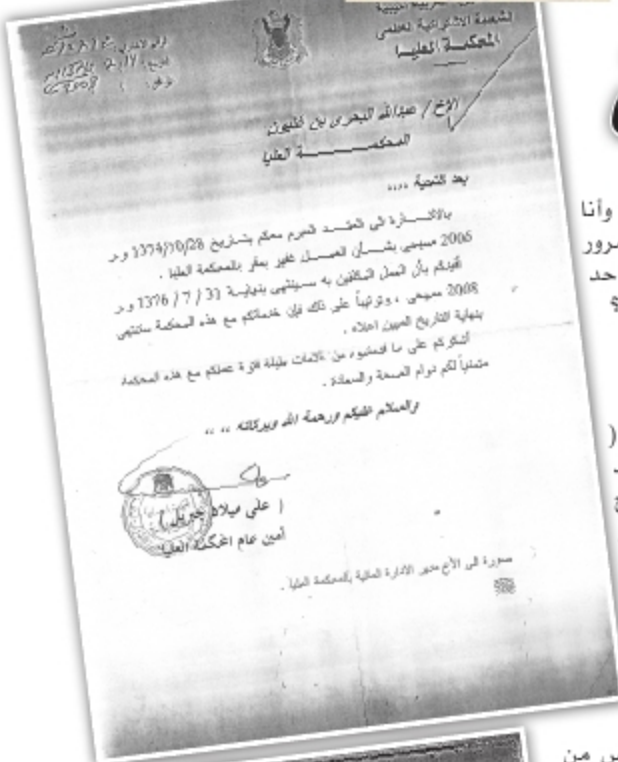 الشعبية الاشتراكية العظمى
المحكمة العليا
الأخ / عبدالله البحرى بن
المحكمة العليا
بعد التحية ،،،،
بالاشارة الى العقد المبرم معكم بتاريخ 1374/10/28 و.ر
2006 مسيحى بشأن العمل خفير بمقر بالمحكمة العليا .
أفيدكم بأن العمل المكلفين به سينتهى بنهاية 31 / 7 / 1376 و.ر
2008 مسيحى ، وترتيباً على ذلك فإن خدماتكم مع هذه المحكمة ستنتهى
بنهاية التاريخ المبين اعلاه .
أشكركم على ما قدمتموه من خدمات طيلة فترة عملكم مع هذه المحكمة
متمنياً لكم دوام الصحة والسعادة .
والسلام عليكم ورحمة الله وبركاته ،، ،،
( على ميلاد جبريل )
أمين عام المحكمة العليا
صورة الى الأخ مدير الادارة المالية بالمحكمة العليا .
وأنا
حد
س من